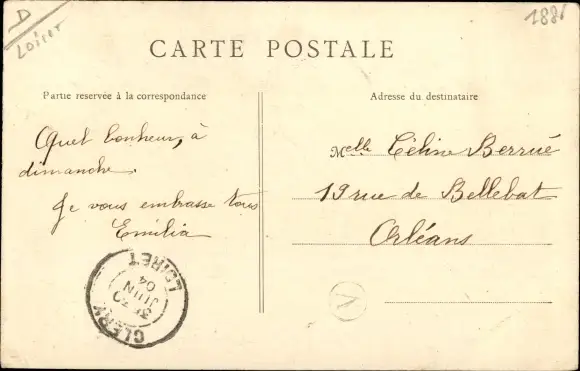 D
Loiret
1881
CARTE POSTALE
Partie reservée à la correspondance
Adresse du destinataire
Quel bonheur, à
dimanche.
Je vous embrasse tous
Emilia
Melle Céline Berrué
19 rue de Bellebat
Orléans
CLERY
JUIN
04
LOIRET